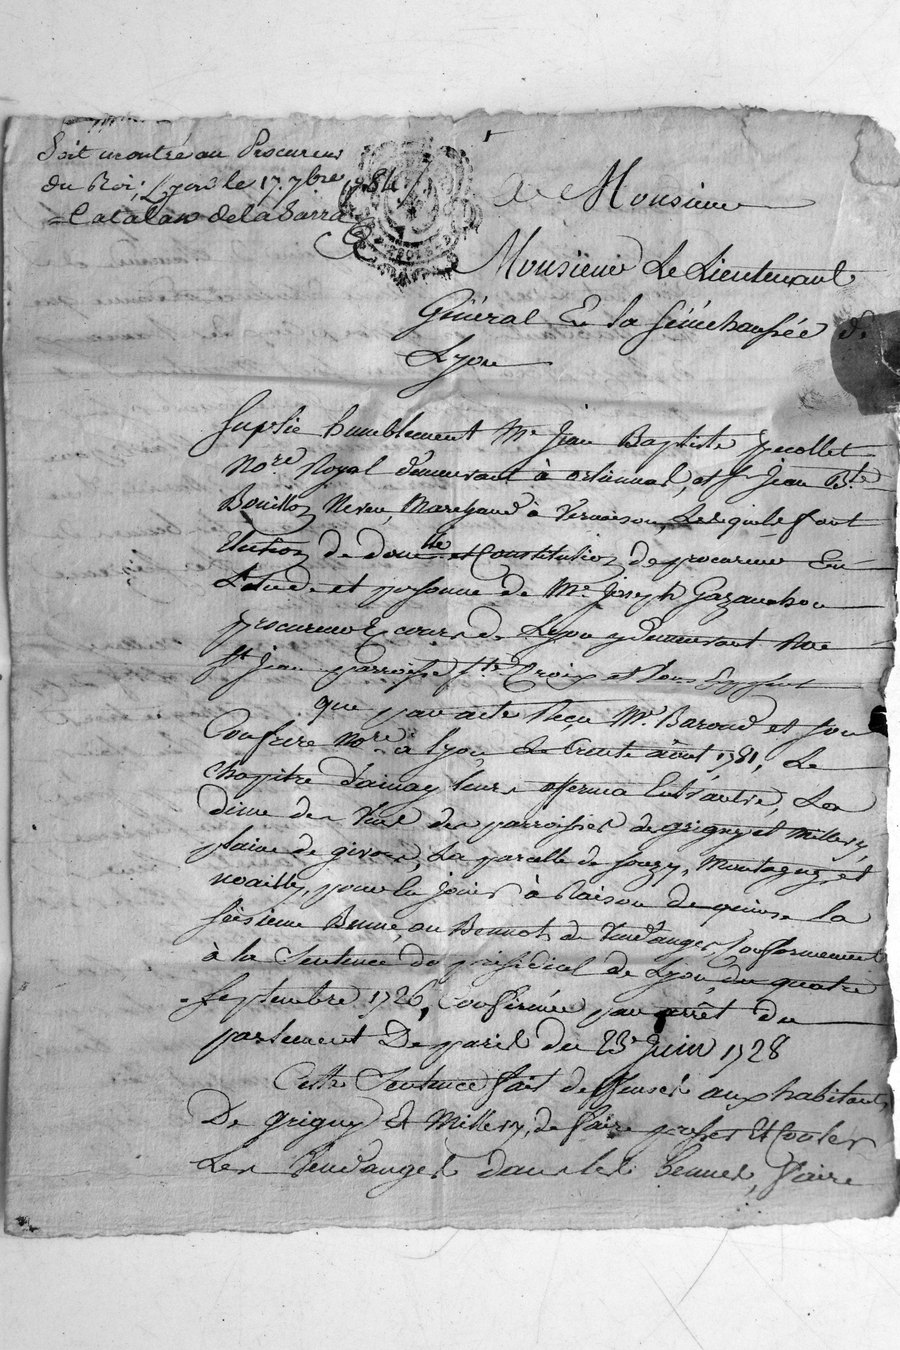 Soit montré au Procureur
du Roi; Lyon le 17. 7bre 1784
Catalan de la Sarra
A Monsieur
Monsieur Le Lieutenant
Général En la sénéchaussée de
Lyon
Suplie humblement Me Jean Baptiste
Nore Royal demeurant à orliennas, et sr Jean Bte
Bouillon Neveu, Marchand à Vernaison, Lesquels font
Election de domlle et Constitution de procureur En
L'etude et personne de Me Joseph Gazanchon
procureur Es cours de Lyon y demeurant Rue
St Jean parroisse ste Croix et Leur
que par acte Reçu Me Baroud et son
Confrere Nore à Lyon Le trente aout 1781, Le
Chapitre d'ainay leur afferma Entr'autre, La
dime des Vins des parroisses de grigny et millery,
plaine de givors, La parcelle de souzy, Montagny et
noailly, pour en jouir à Raison de quinze la
séesieme Benne, ou Bennot de Vendanges, Conformement
à la Sentence du présidial de Lyon, du quatre
Septembre 1726, Confirmée par arrêt du
parlement De paris du 23 Juin 1728
Cette Sentence fait deffenses aux habitants
De grigny Et Millery, de faire presser Et Couler
Les Vendanges dans les bennes, faire